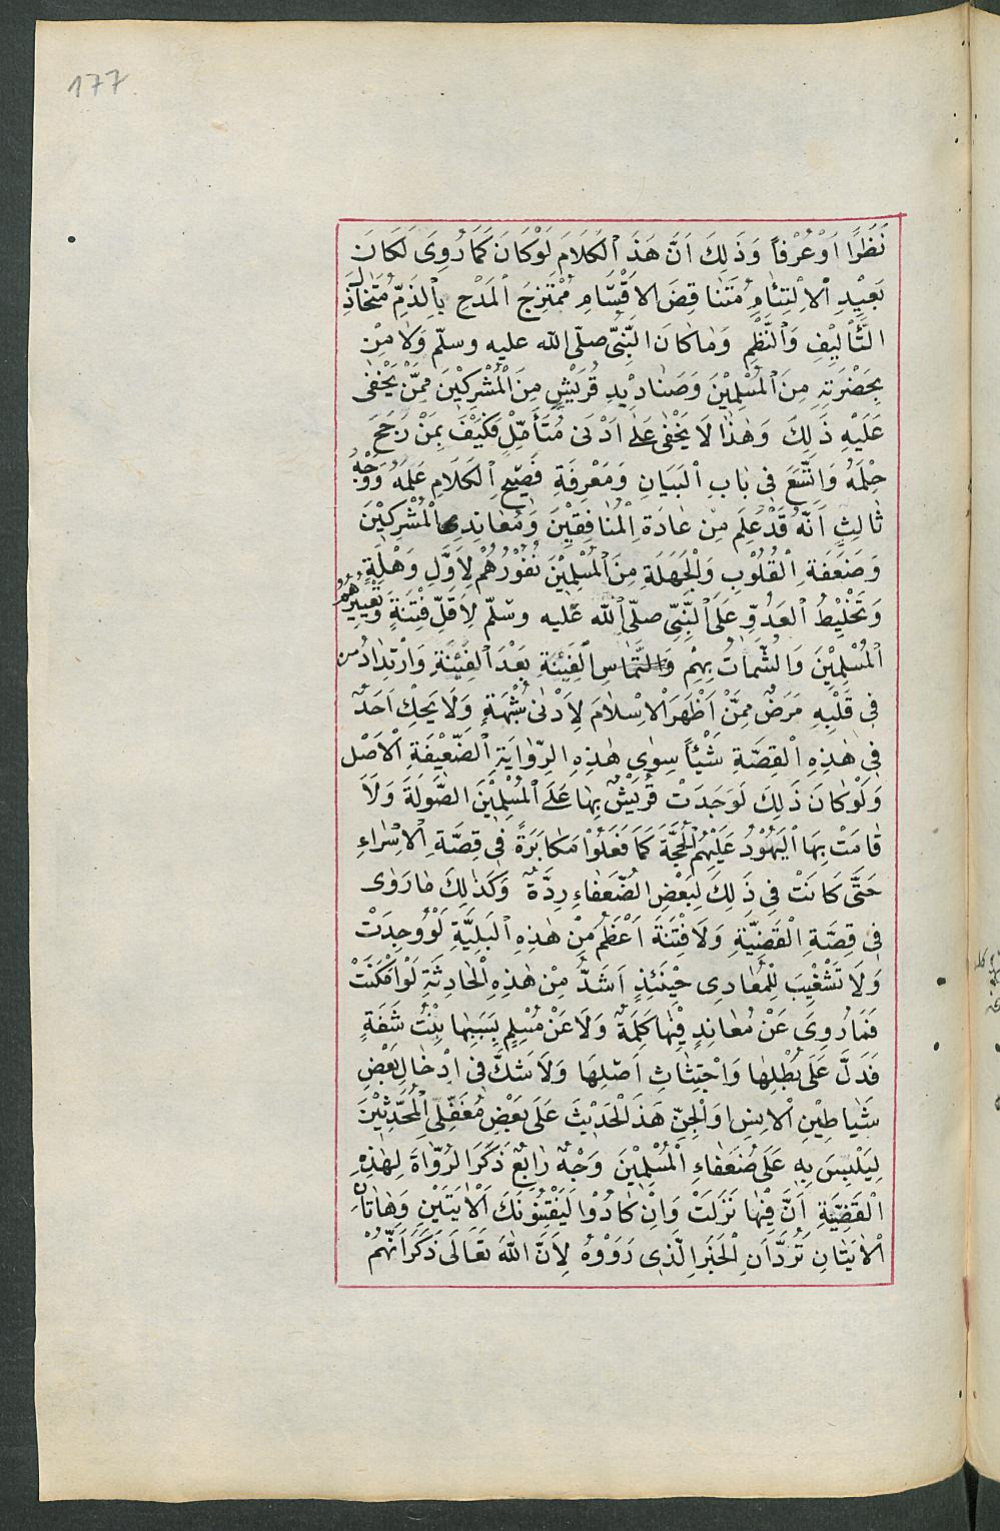 177
نَظَرًا اَوْعُرْفاً وَذَلِكَ اَنَّ هَذَ الْكَلَامَ لَوْكَانَ كَمَا رُوِىَ لَكَانَ
بَعِيْدِ الْاِلْتِئَامِ مُتَنَاقِضَ الاَقْسَامِ مُمْتَزِجَ الْمَدْحِ بِالذَّمِّ مُتَخَاذِلَ
التَّأْلِيْفِ وَالنَّظْمِ وَمَاكَانَ النَّبِىّ صلّى الله عليه وسلّم وَلَا مِنْ
بِحَضْرَتِهِ مِنَ الْمُسْلِمِيْنَ وَصَنَادِيْدِ قُرَيْشٍ مِنَ الْمُشْرِكِيْنَ مِمَّنْ يَخْفٰى
عَلَيْهِ ذَلِكَ وَهٰذَا لَا يَخْفٰى عَلَى اَدْنَى مُتَأَمِّلٍ فَكَيْفَ بِمَنْ رَجَحَ
حِلْمَهُ وَاتَّسَعَ فى بَابِ الْبَيَانِ وَمَعْرِفَةِ فَصِيْحِ الْكَلَامِ عَلِمَهُ وَوَجْهٌ
ثَالِثٌ اَنَّهُ قَدْ عُلِمَ مِنْ عَادَةِ الْمُنَافِقِيْنَ وَمُعَانِدِى الْمُشْرِكِيْنَ
وَضَعَفَةِ الْقُلُوْبِ وَالْجَهَلَةِ مِنَ الْمُسْلِمِيْنَ نُفُوْرُهُمْ لِاَوَّلِ وَهْلَةٍ
وَتَخْلِيْطُ الْعَدُوِّ عَلَى النَّبِىِّ صلّى الله عليه وسّلم لِاَقَلِّ فِتْنَةٍ وَتَعْيِيْرُهُمُ
الْمُسْلِمِيْنَ وَالشَّمَاتُ بِهِمْ وَالتَّمَاسِ الْفَيْنَةِ بَعْدَ الْفَيْنَةِ وَارْتِدَادُ من
فِى قَلْبِهِ مَرَضٌ مِمَّنْ اَظْهَرَ الْاِسْلَامَ لِاَدْنٰى شُبْهَةٍ وَلَا يَحْكِ اَحَدٌ
فى هٰذِهِ الْقِصَّةِ شَيْئاً سِوٰى هٰذِهِ الرِّوَايَةِ الضَّعِيْفَةِ الْاَصْل
وَلَوْكَانَ ذَلِكَ لَوَجَدَتْ قُرَيْشٌ بِهَا عَلَى الْمُسْلِمِيْنَ الصَّوْلَةَ وَلَا
قَامَتْ بِهَا الْيَهُوْدُ عَلَيْهُمْ الْحُجَّةَ كَمَا فَعَلُوْا مَكَابَرَةً فى قِصَّةِ الْاِسْرَاءِ
حَتَّى كَانَتْ فى ذَلِكَ لِبَعْضِ الضُّعَفَاءِ رِدَّةٌ وَكَذٰلِكَ مَا رَوٰى
فى قِصَّةِ الْقَضِيَّةِ وَلَا فِتْنَةَ اَعْظَمُ مِنْ هٰذِهِ الْبَلِيَّةِ لَوْ وُجِدَتْ
وَلَا تَشْغِيْبَ لِلْمُعَادِى حِيْنَئِذٍ اَشَدَّ مِنْ هٰذِهِ الْحَادِثَةِ لَوْ اَمْكَنَتْ
فَمَا رُوِىَ عَنْ مُعَانِدٍ فِيْهَا كَلِمَةٌ وَلَا عَنْ مُسْلِمٍ بِسَبَبِهَا بِنْتُ شَفَةٍ
فَدَلَّ عَلَى بُطْلِهَا وَاجْتِثَاثِ اَصْلِهَا وَلَا شَكَّ فى اِدْخَالِ بَعْضِ
شَيَاطِيْنِ الْاِنْسِ اوَ الْجِنِّ هَذَ الْحَدِيْثَ عَلَى بَعْضِ مُغَفَّلِى الْمُحَدِّثِيْنَ
لِيَلْبِسَ بِهِ عَلَى ضُعَفَاءِ الْمُسْلِمِيْنَ وَجْهٌ رَابِعٌ ذَكَرَ الرُّوَاةَ لِهٰذِهِ
الْقَضِيَّةِ اَنَّ فِيْهَا نَزَلَتْ وَاِنْ كَادُوْا لَيَفْتِنُونَكَ اَلْاٰيَتَيْنِ وَهَاتَانِ
الْاٰيَتَانِ تَرُدَّانِ الْخَبَرَ الَّذِى رَوَوْهُ لِاَنَّ اللهَ تَعَالَى ذَكَرَ اَنَّهُمْ